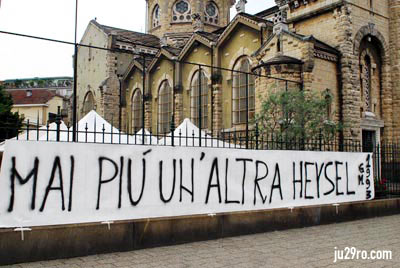 MAI PIÚ UN'ALTRA HEYSEL
GM
1993
ju29ro.com